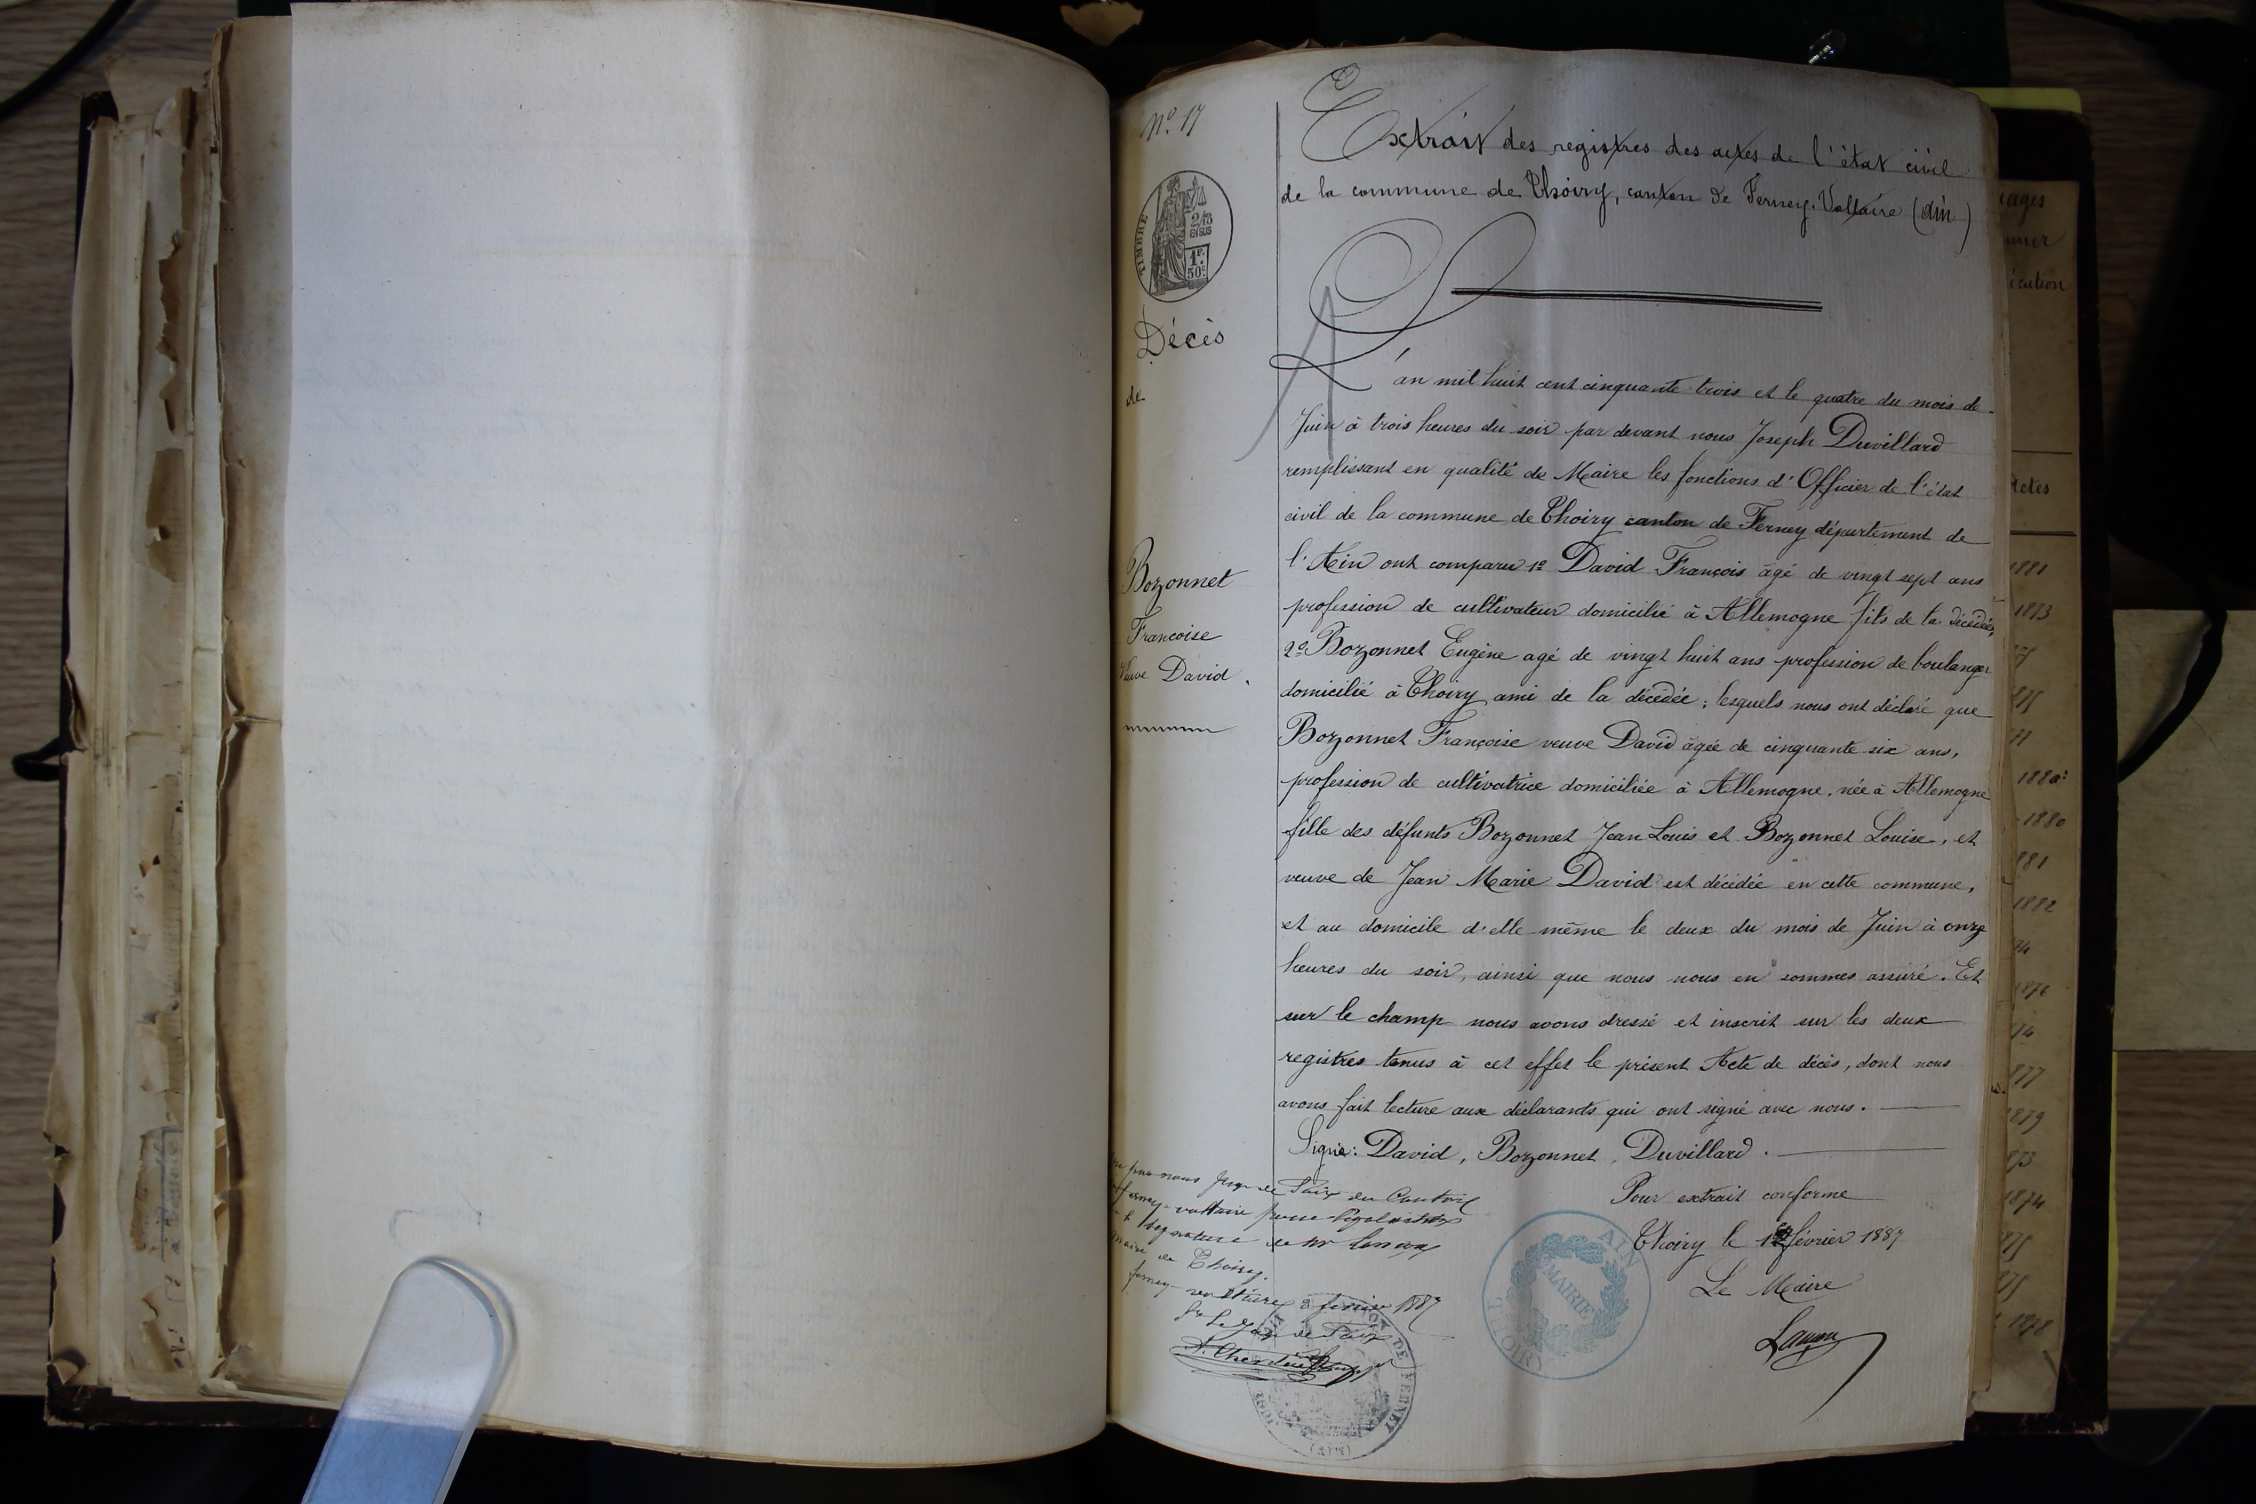 No. 17
TIMBRE
2/10
EN SUS
1F.
50c
Décès
de
Bozonnet
Francoise
Veuve David.
Extrait des registres des actes de l'état civil
de la commune de Thoiry, canton de Ferney-Voltaire (Ain)
L'an mil huit cent cinquante trois et le quatre du mois de
Juin à trois heures du soir par devant nous Joseph Duvillard
remplissant en qualité de Maire les fonctions d'Officier de l'état
civil de la commune de Thoiry canton de Ferney département de
l'Ain ont comparu 1º David François âgé de vingt sept ans
profession de cultivateur domicilié à Allemogne fils de la décédée,
2º Bozonnet Eugène agé de vingt huit ans profession de boulanger
domicilié à Thoiry ami de la décédée ; lesquels nous ont déclaré que
Bozonnet Françoise veuve David âgée de cinquante six ans,
profession de cultivatrice domiciliée à Allemogne, née à Allemogne
fille des défunts Bozonnet Jean Louis et Bozonnet Louise, et
veuve de Jean Marie David est décédée en cette commune,
et au domicile d'elle même le deux du mois de Juin à onze
heures du soir, ainsi que nous nous en sommes assuré. Et
sur le champ nous avons dressé et inscrit sur les deux
registres tenus à cet effet le présent Acte de décès, dont nous
avons fait lecture aux déclarants qui ont signé avec nous.
Signé: David, Bozonnet, Duvillard.
Pour extrait conforme
Thoiry le février 1887
Le Maire
par nous Juge de Paix du Canton
Ferney-voltaire pour
signature de Mr
maire de Thoiry.
ferney-voltaire 2 février 1887
Le Juge de Paix
MAIRIE
AIN
THOIRY
(AIN)
ages
1881
1873
1880
1880
881
1882
1876
877
1879
1874
1878